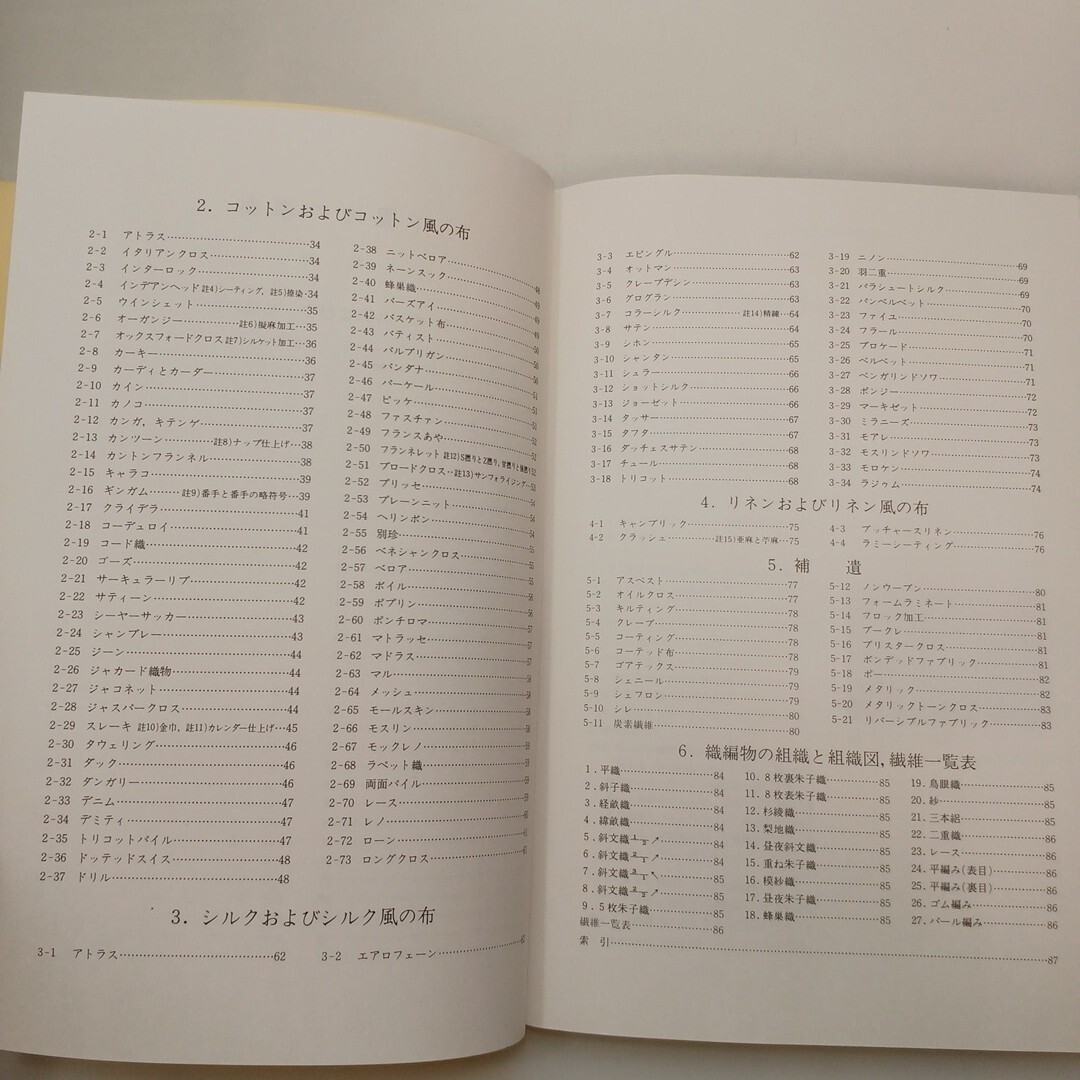 2. コットンおよびコットン風の布
2-1 アトラス……34
2-2 イタリアンクロス……34
2-3 インターロック……34
2-4 インデアンヘッド 註4)シーティング, 註5)捺染・34
2-5 ウインシェット……35
2-6 オーガンジー……註6)擬麻加工…35
2-7 オックスフォードクロス 註7)シルケット加工…36
2-8 カーキー……36
2-9 カーディとカーダー……37
2-10 カイン……37
2-11 カノコ……37
2-12 カンガ, キテンゲ……37
2-13 カンツーン……註8)ナップ仕上げ…38
2-14 カントンフランネル……38
2-15 キャラコ……39
2-16 ギンガム……註9)番手と番手の略符号…39
2-17 クライデラ……41
2-18 コーデュロイ……41
2-19 コード織……42
2-20 ゴーズ……42
2-21 サーキュラーリブ……42
2-22 サティーン……42
2-23 シーヤーサッカー……43
2-24 シャンブレー……43
2-25 ジーン……44
2-26 ジャカード織物……44
2-27 ジャコネット……44
2-28 ジャスパークロス……44
2-29 スレーキ 註10)金巾, 註11)カレンダー仕上げ…45
2-30 タウェリング……46
2-31 ダック……46
2-32 ダンガリー……46
2-33 デニム……47
2-34 デミティ……47
2-35 トリコットパイル……47
2-36 ドッテッドスイス……48
2-37 ドリル……48
2-38 ニットベロア……48
2-39 ネーンスック……49
2-40 蜂巣織……49
2-41 バーズアイ……49
2-42 バスケット布……49
2-43 バティスト……50
2-44 バルブリガン……50
2-45 バンダナ……50
2-46 パーケール……51
2-47 ピッケ……51
2-48 ファスチャン……52
2-49 フランスあや……52
2-50 フランネレット 註12)S撚りとZ撚り,
2-51 ブロードクロス…註13)サンフォライジング…53
2-52 ブリッセ……54
2-53 プレーンニット……54
2-54 ヘリンボン……54
2-55 別珍……55
2-56 ベネシャンクロス……55
2-57 ベロア……55
2-58 ボイル……56
2-59 ポプリン……56
2-60 ポンチロマ……57
2-61 マトラッセ……57
2-62 マドラス……58
2-63 マル……58
2-64 メッシュ……58
2-65 モールスキン……58
2-66 モスリン……58
2-67 モックレノ……59
2-68 ラペット織……59
2-69 両面パイル……59
2-70 レース……59
2-71 レノ……60
2-72 ローン……60
2-73 ロングクロス……61
3. シルクおよびシルク風の布
3-1 アトラス……62
3-2 エアロフェーン……62
3-3 エピングル……62
3-4 オットマン……63
3-5 クレープデシン……63
3-6 グログラン……63
3-7 コラーシルク……註14)精練…64
3-8 サテン……64
3-9 シホン……65
3-10 シャンタン……65
3-11 シュラー……66
3-12 ショットシルク……66
3-13 ジョーゼット……66
3-14 タッサー……67
3-15 タフタ……67
3-16 ダッチェスサテン……68
3-17 チュール……68
3-18 トリコット……68
3-19 ニノン……69
3-20 羽二重……69
3-21 パラシュートシルク……69
3-22 パンベルベット……70
3-23 ファイユ……70
3-24 フラール……70
3-25 ブロケード……71
3-26 ベルベット……71
3-27 ベンガリンドソワ……71
3-28 ポンジー……72
3-29 マーキゼット……72
3-30 ミラニーズ……73
3-31 モアレ……73
3-32 モスリンドソワ……73
3-33 モロケン……74
3-34 ラジゥム……74
4. リネンおよびリネン風の布
4-1 キャンブリック……75
4-2 クラッシュ……註15)亜麻と苧麻…75
4-3 ブッチャースリネン……76
4-4 ラミーシーティング……76
5. 補 遺
5-1 アスベスト……77
5-2 オイルクロス……77
5-3 キルティング……78
5-4 クレープ……78
5-5 コーティング……78
5-6 コーテッド布……78
5-7 ゴアテックス……78
5-8 シェニール……79
5-9 シェフロン……79
5-10 シレ……80
5-11 炭素繊維……80
5-12 ノンウーブン……80
5-13 フォームラミネート……81
5-14 フロック加工……81
5-15 ブークレ……81
5-16 ブリスタークロス……81
5-17 ボンデッドファブリック……81
5-18 ポー……82
5-19 メタリック……82
5-20 メタリックトーンクロス……83
5-21 リバーシブルファブリック……83
6. 織編物の組織と組織図, 繊維一覧表
1. 平織……84
2. 斜子織……84
3. 経畝織……84
4. 緯畝織……84
5. 斜文織 ↗……85
6. 斜文織 ↗……85
7. 斜文織 ↖……85
8. 斜文織 ↗……85
9. 5枚朱子織……85
繊維一覧表……86
索 引……87
10. 8枚裏朱子織……85
11. 8枚表朱子織……85
12. 杉綾織……85
13. 梨地織……85
14. 昼夜斜文織……85
15. 重ね朱子織……85
16. 模紗織……85
17. 昼夜朱子織……85
18. 蜂巣織……85
19. 鳥眼織……85
20. 紗……85
21. 三本絽……85
22. 二重織……86
23. レース……86
24. 平編み(表目)……86
25. 平編み(裏目)……86
26. ゴム編み……86
27. パール編み……86